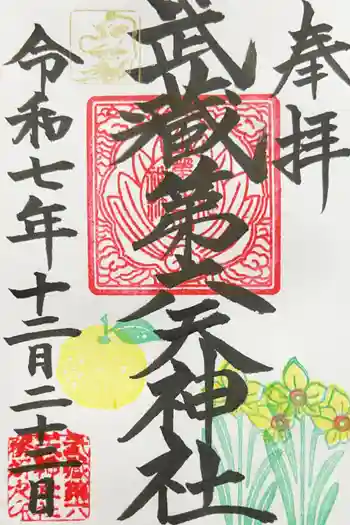 奉拝
武蔵第六天神社
令和七年十二月二十二日